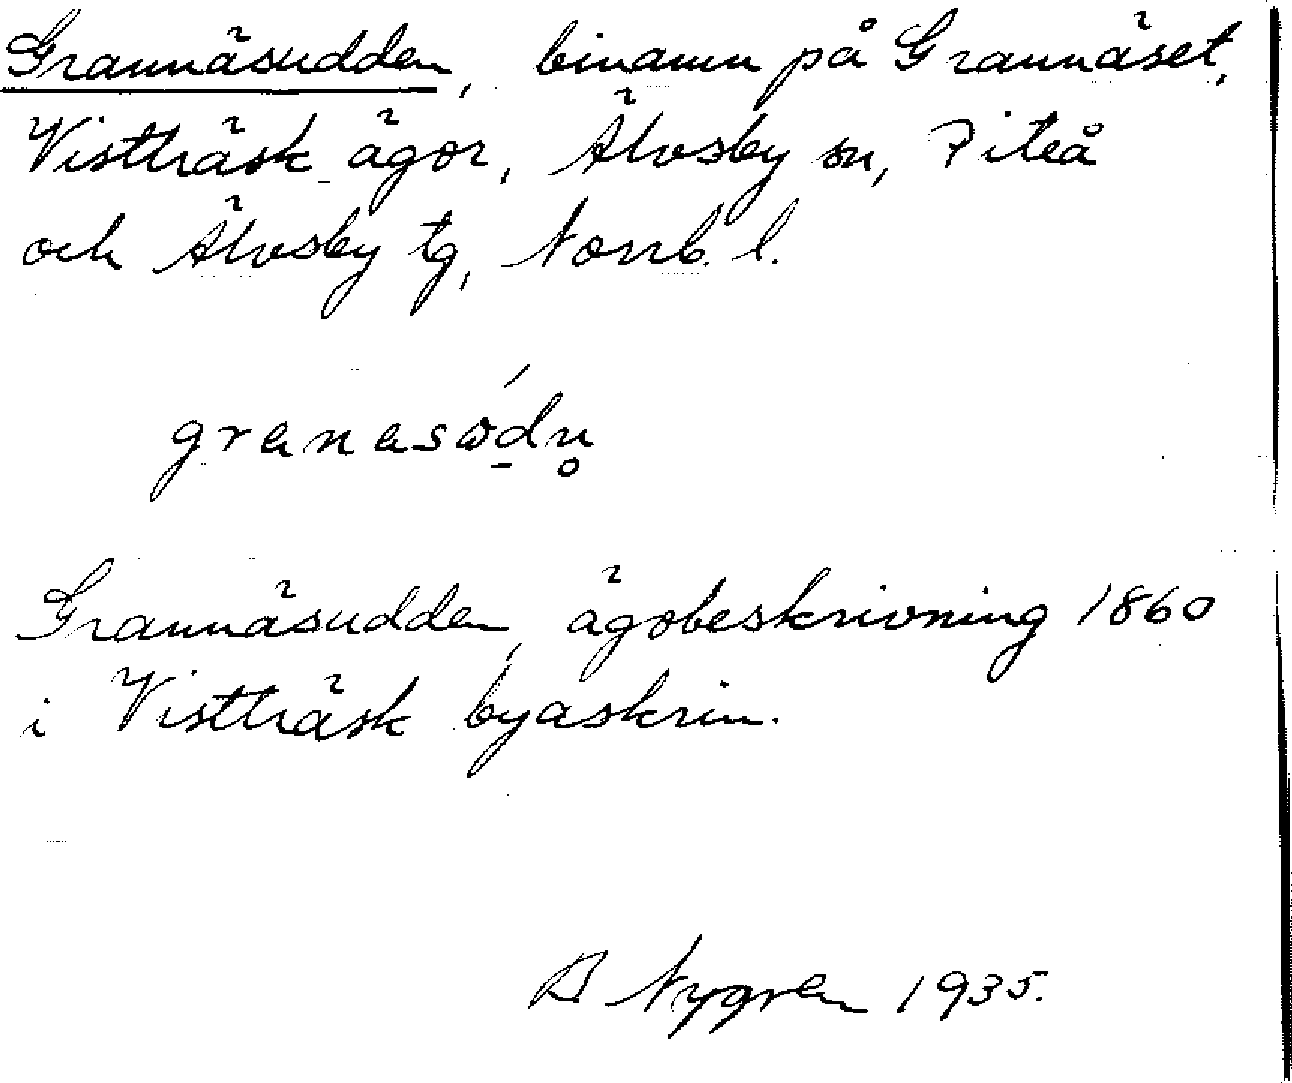 Grannäsudden, binamn på Grannäset,
Vistträsk ägor, Älvsby sn, Piteå
och Älvsby tg, Norrb. l.
granasɷ́dn̥
Grannäsudden, ägobeskrivning 1860
i Vistträsk byaskrin.
B Nygren 1935.